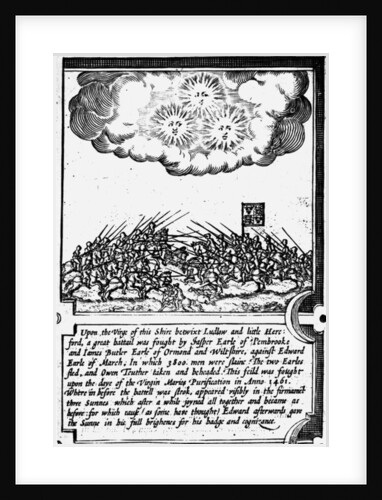 Upon the Vige of this Shire betwixt Ludlow and little Here:
ford, a great battail was fought by Jasper Earle of Pembrooke
and Iames Butler Earle of Ormond and Wiltshire, against Edward
Earle of March, In which 3800. men were slaine The two Earles
fled, and Owen Teuther taken and beheaded. This feild was fought
upon the daye of the Virgin Maries Purification in Anno 1461.
Wherin before the battell was strok, appeared visibly in the firmament
three Sunnes which after a while joyned all together and became as
before: for which cause (as some have thought) Edward afterwards gave
the Sunne in his full brightnes for his badge and cognisance.